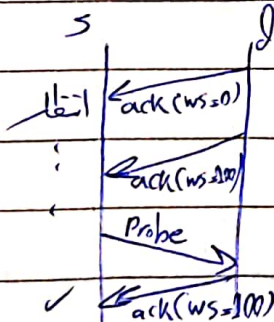 S d
انتظار ack(ws=0)
ack(ws=100)
Probe
✓ ack(ws=100)